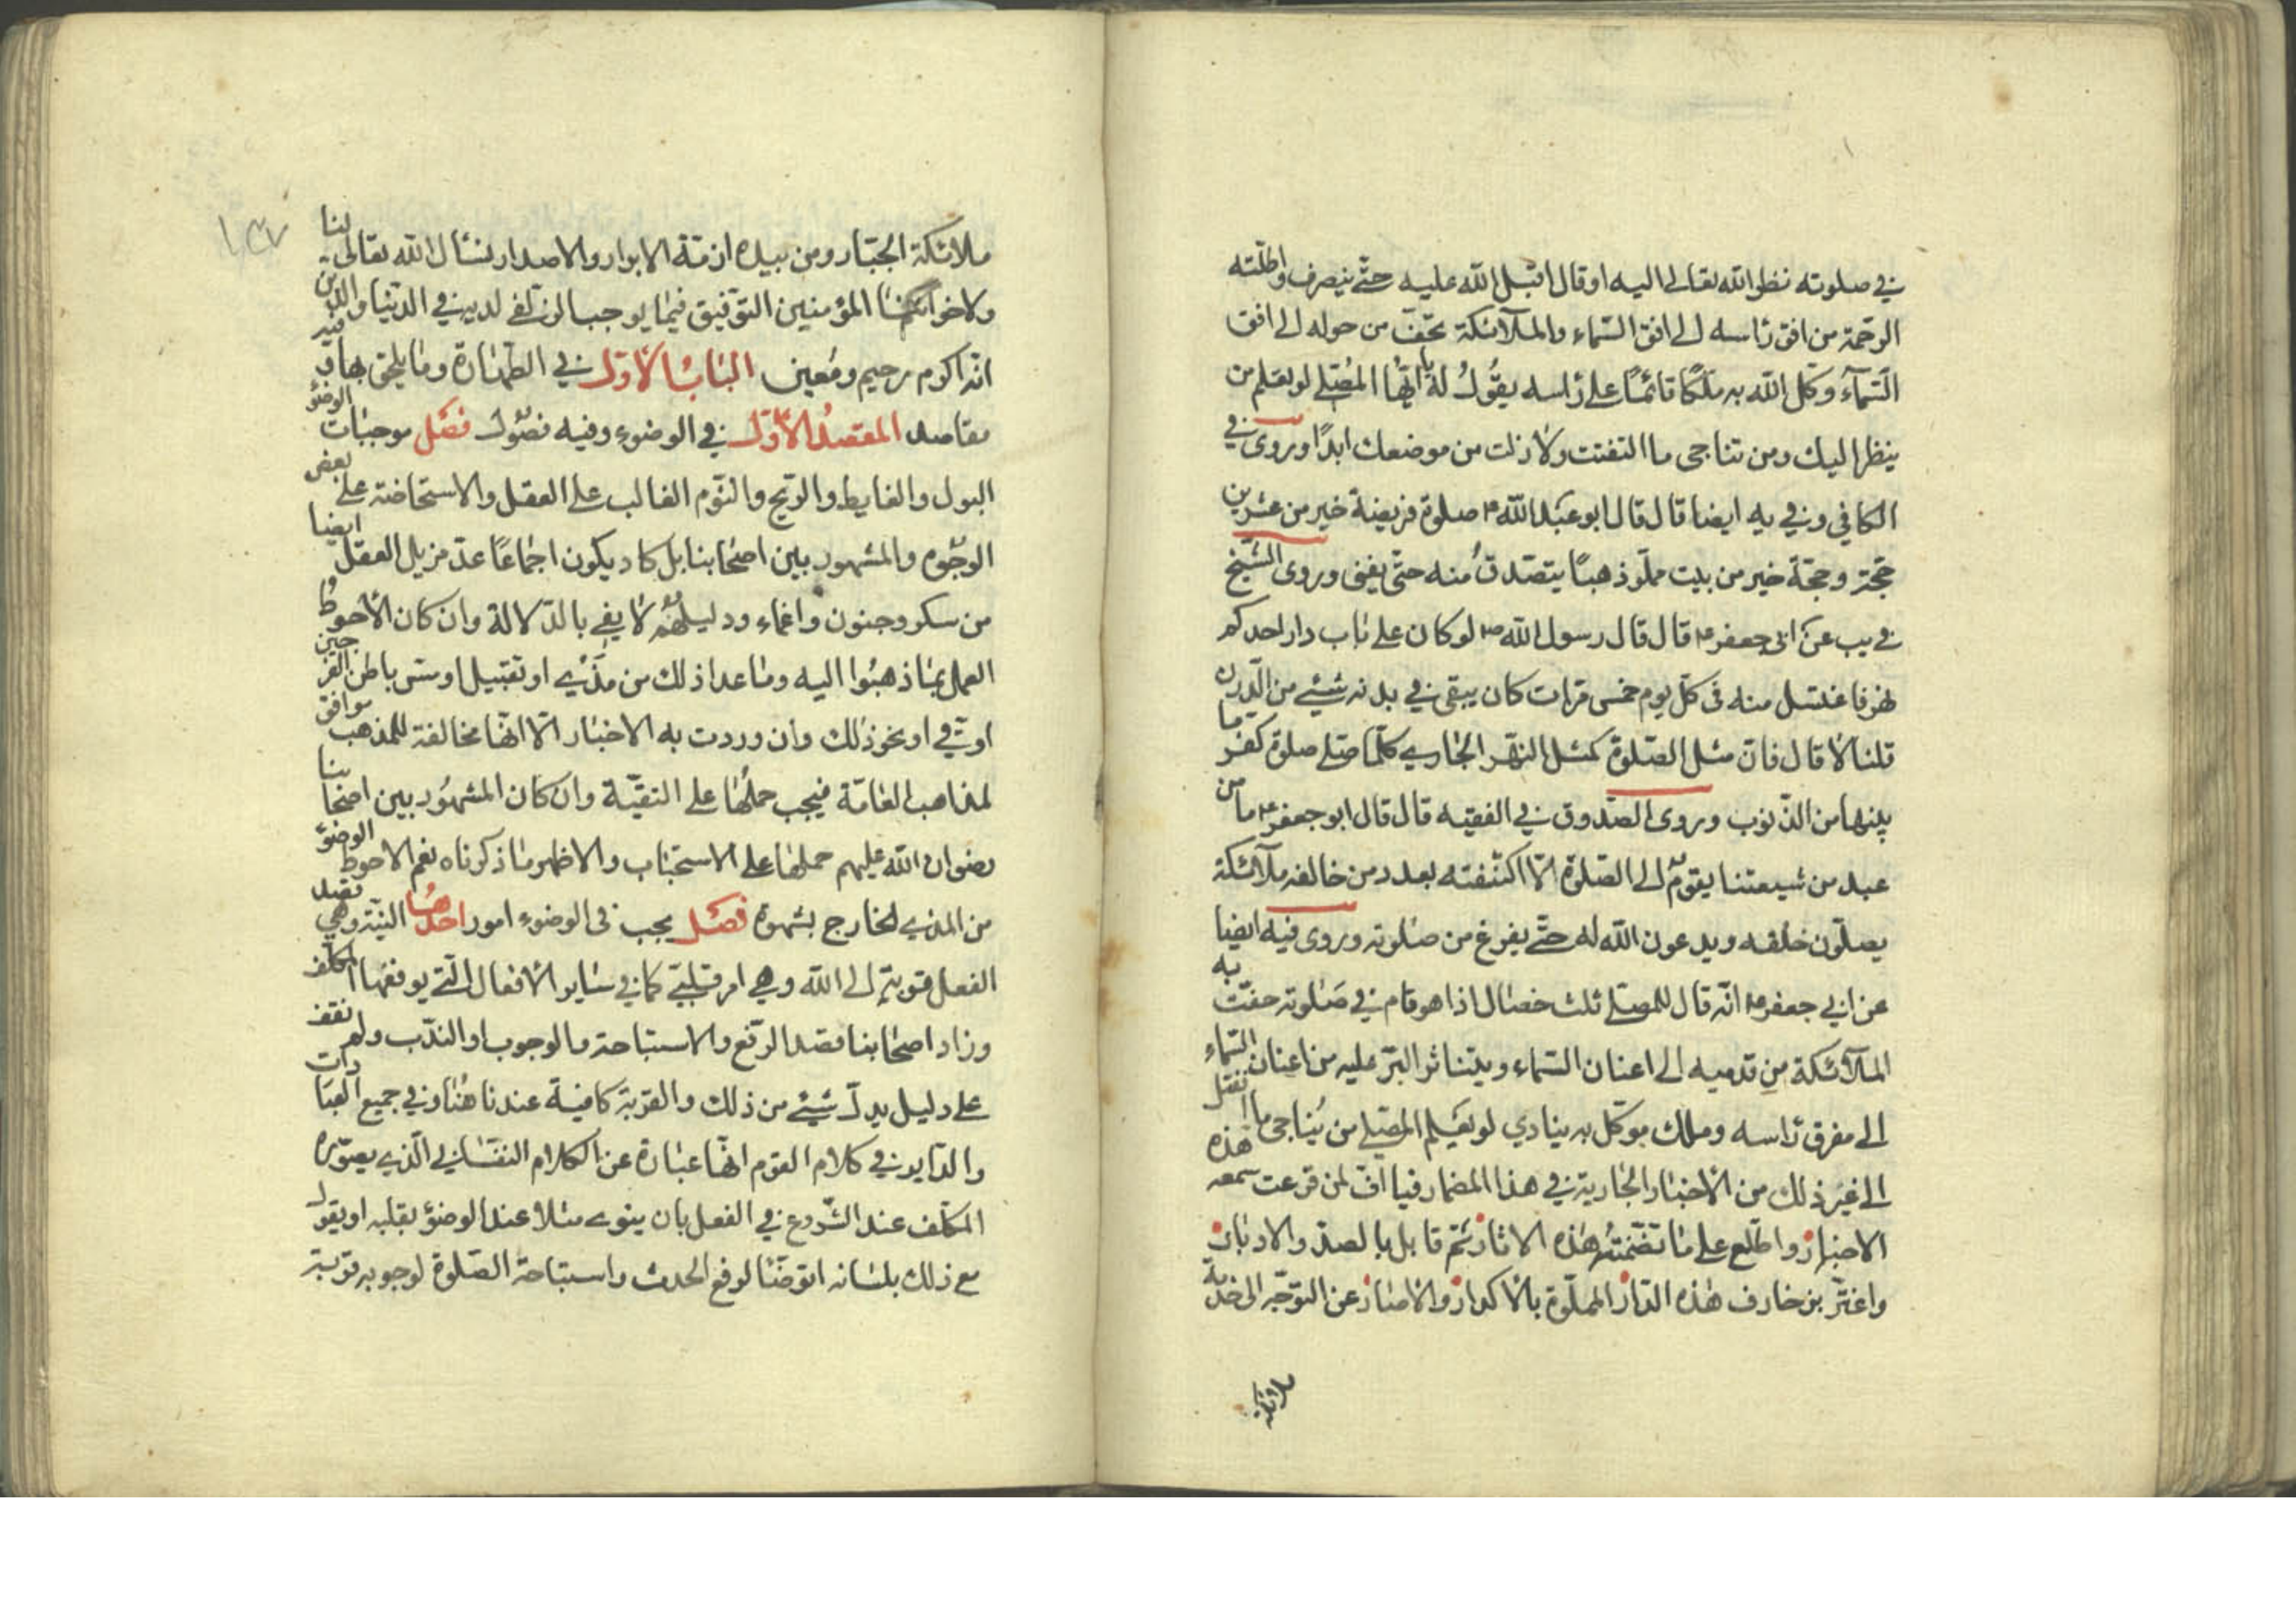 في صلوته نظر الله تعالى اليه او قال اقبل الله عليه حتى ينصرف واظلته
الرحمة من افق راسه الى افق السماء والملائكة تحف من حوله الى افق
السماء وكل الله به ملكا قائما على راسه يقول له يا ايها المصلي لو تعلم من
ينظر اليك ومن تناجي ما التفتت ولا زلت من موضعك ابدا وروى في
الكافي وفي يه ايضا قال قال ابو عبد الله ع صلوة فريضة خير من عشرين
حجة وحجة خير من بيت مملو ذهبا يتصدق منه حتى يفنى وروى الشيخ
في يب عن ابي جعفر ع قال قال رسول الله ص لو كان على باب دار احدكم
نهر فاغتسل منه في كل يوم خمس مرات كان يبقى في بدنه شيئ من الدرن
قلنا لا قال فان مثل الصلوة كمثل النهر الجاري كلما صلى صلوة كفر ما
بينهما من الذنوب وروى الصدوق في الفقيه قال قال ابو جعفر ع ما من
عبد من شيعتنا يقوم الى الصلوة الا اكتنفته بعدد من خالفه ملائكة
يصلون خلفه ويدعون الله له حتى يفرغ من صلوته وروى فيه ايضا
عن ابي جعفر ع انه قال للمصلي ثلث خصال اذا هو قام في صلوته حفت به
الملائكة من قدميه الى اعنان السماء ويتناثر البر عليه من اعنان السماء
الى مفرق راسه وملك موكل به ينادي لو يعلم المصلي من يناجي ما انفتل
الى غير ذلك من الاخبار الجارية في هذا المضمار فيا اف لمن قرعت سمعه هذه
الاخبار واطلع على ما تضمنته هذه الاثار ثم قابل بالصد والادبار
واغتر بزخارف هذه الدار المملوة بالاكدار والاضار عن التوجه الى خدمة
ملائكة
١٣٧
ملائكة الجبار ومن بيده ازمة الايراد والاصدار نسال الله تعالى لنا
ولاخواننا المؤمنين التوفيق فيما يوجب الزلفى لديه في الدنيا والدين
انه اكرم رحيم ومعين الباب الاول في الطهارة وما يلحق بها وفيه
مقاصد المقصد الاول في الوضوء وفيه فصول فصل موجبات الوضوء
البول والغايط والريح والنوم الغالب على العقل والاستحاضة على بعض
الوجوه والمشهور بين اصحابنا بل كاد يكون اجماعا عد مزيل العقل ايضا
من سكر وجنون واغماء ودليلهم لا يفي بالدلالة وان كان الاحوط
العمل بما ذهبوا اليه وما عدا ذلك من مذي او تقبيل او مس باطن الفرجين
او قي او نحو ذلك وان وردت به الاخبار الا انها مخالفة للمذهب موافق
لمذاهب العامة فيجب حملها على التقية وان كان المشهور بين اصحابنا
رضوان الله عليهم حملها على الاستحباب والاظهر ما ذكرناه نعم الاحوط الوضوء
من المذي الخارج بشهوة فصل يجب في الوضوء امور احدها النية وهي قصد
الفعل قربة الى الله وهي امر قلبي كما في ساير الافعال التي يوقعها المكلف
وزاد اصحابنا قصد الرفع والاستباحة والوجوب او الندب ولم نقف
على دليل يدل شيئ من ذلك والقربة كافية عندنا هنا وفي جميع العبادات
والداير في كلام القوم انها عبارة عن الكلام النفساني الذي يصوره
المكلف عند الشروع في الفعل بان ينوي مثلا عند الوضوء بقلبه او يقول
مع ذلك بلسانه اتوضا لرفع الحدث واستباحة الصلوة لوجوبه قربة